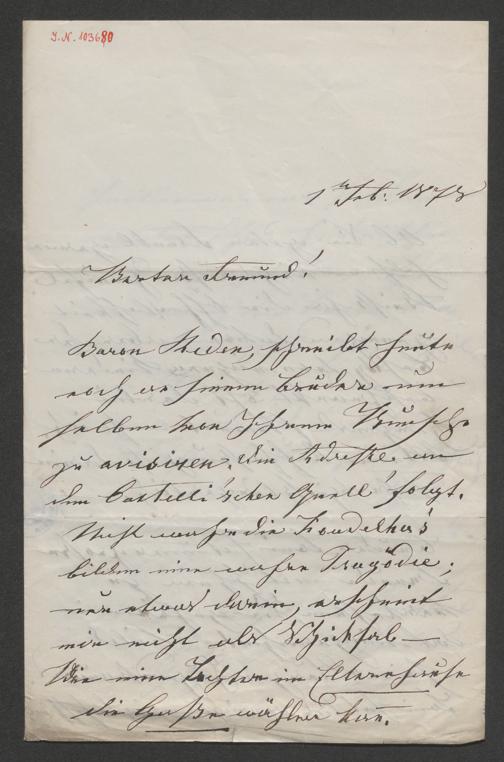 J.N. 103680
1t Feb. 1878
Werter Freund!
Baron Steden schreibt heute
noch an seinen Bruder um
selben von Ihrem Wunsche
zu avisiren. Die Adresse an
den Castelli'schen Quell' folgt.
Nicht wahr die Koudelka's
bilden eine wahre Tragödie;
nur etwas darin, erscheint
mir nicht als Schicksal –
Wie eine Tochter im Elternhause
die Gasse wählen kan.